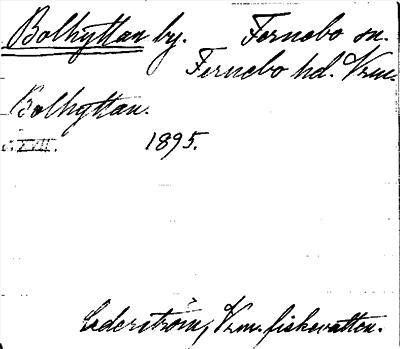 Bolhyttan by. Fernebo sn.
Fernebo hd. Vrm.
Bolhyttan.
1895.
Cederström, Vrm. fiskevatten.